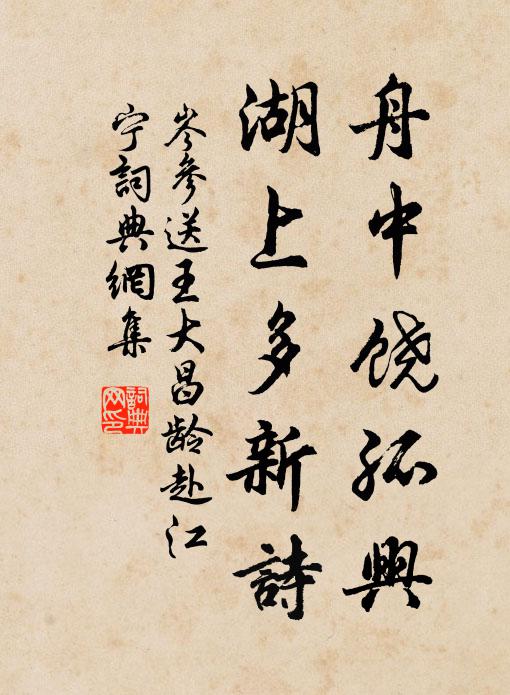 舟中饶孤興
湖上多新詩
岑參送王大昌龄赴江
宁詞典網集
詞典网印